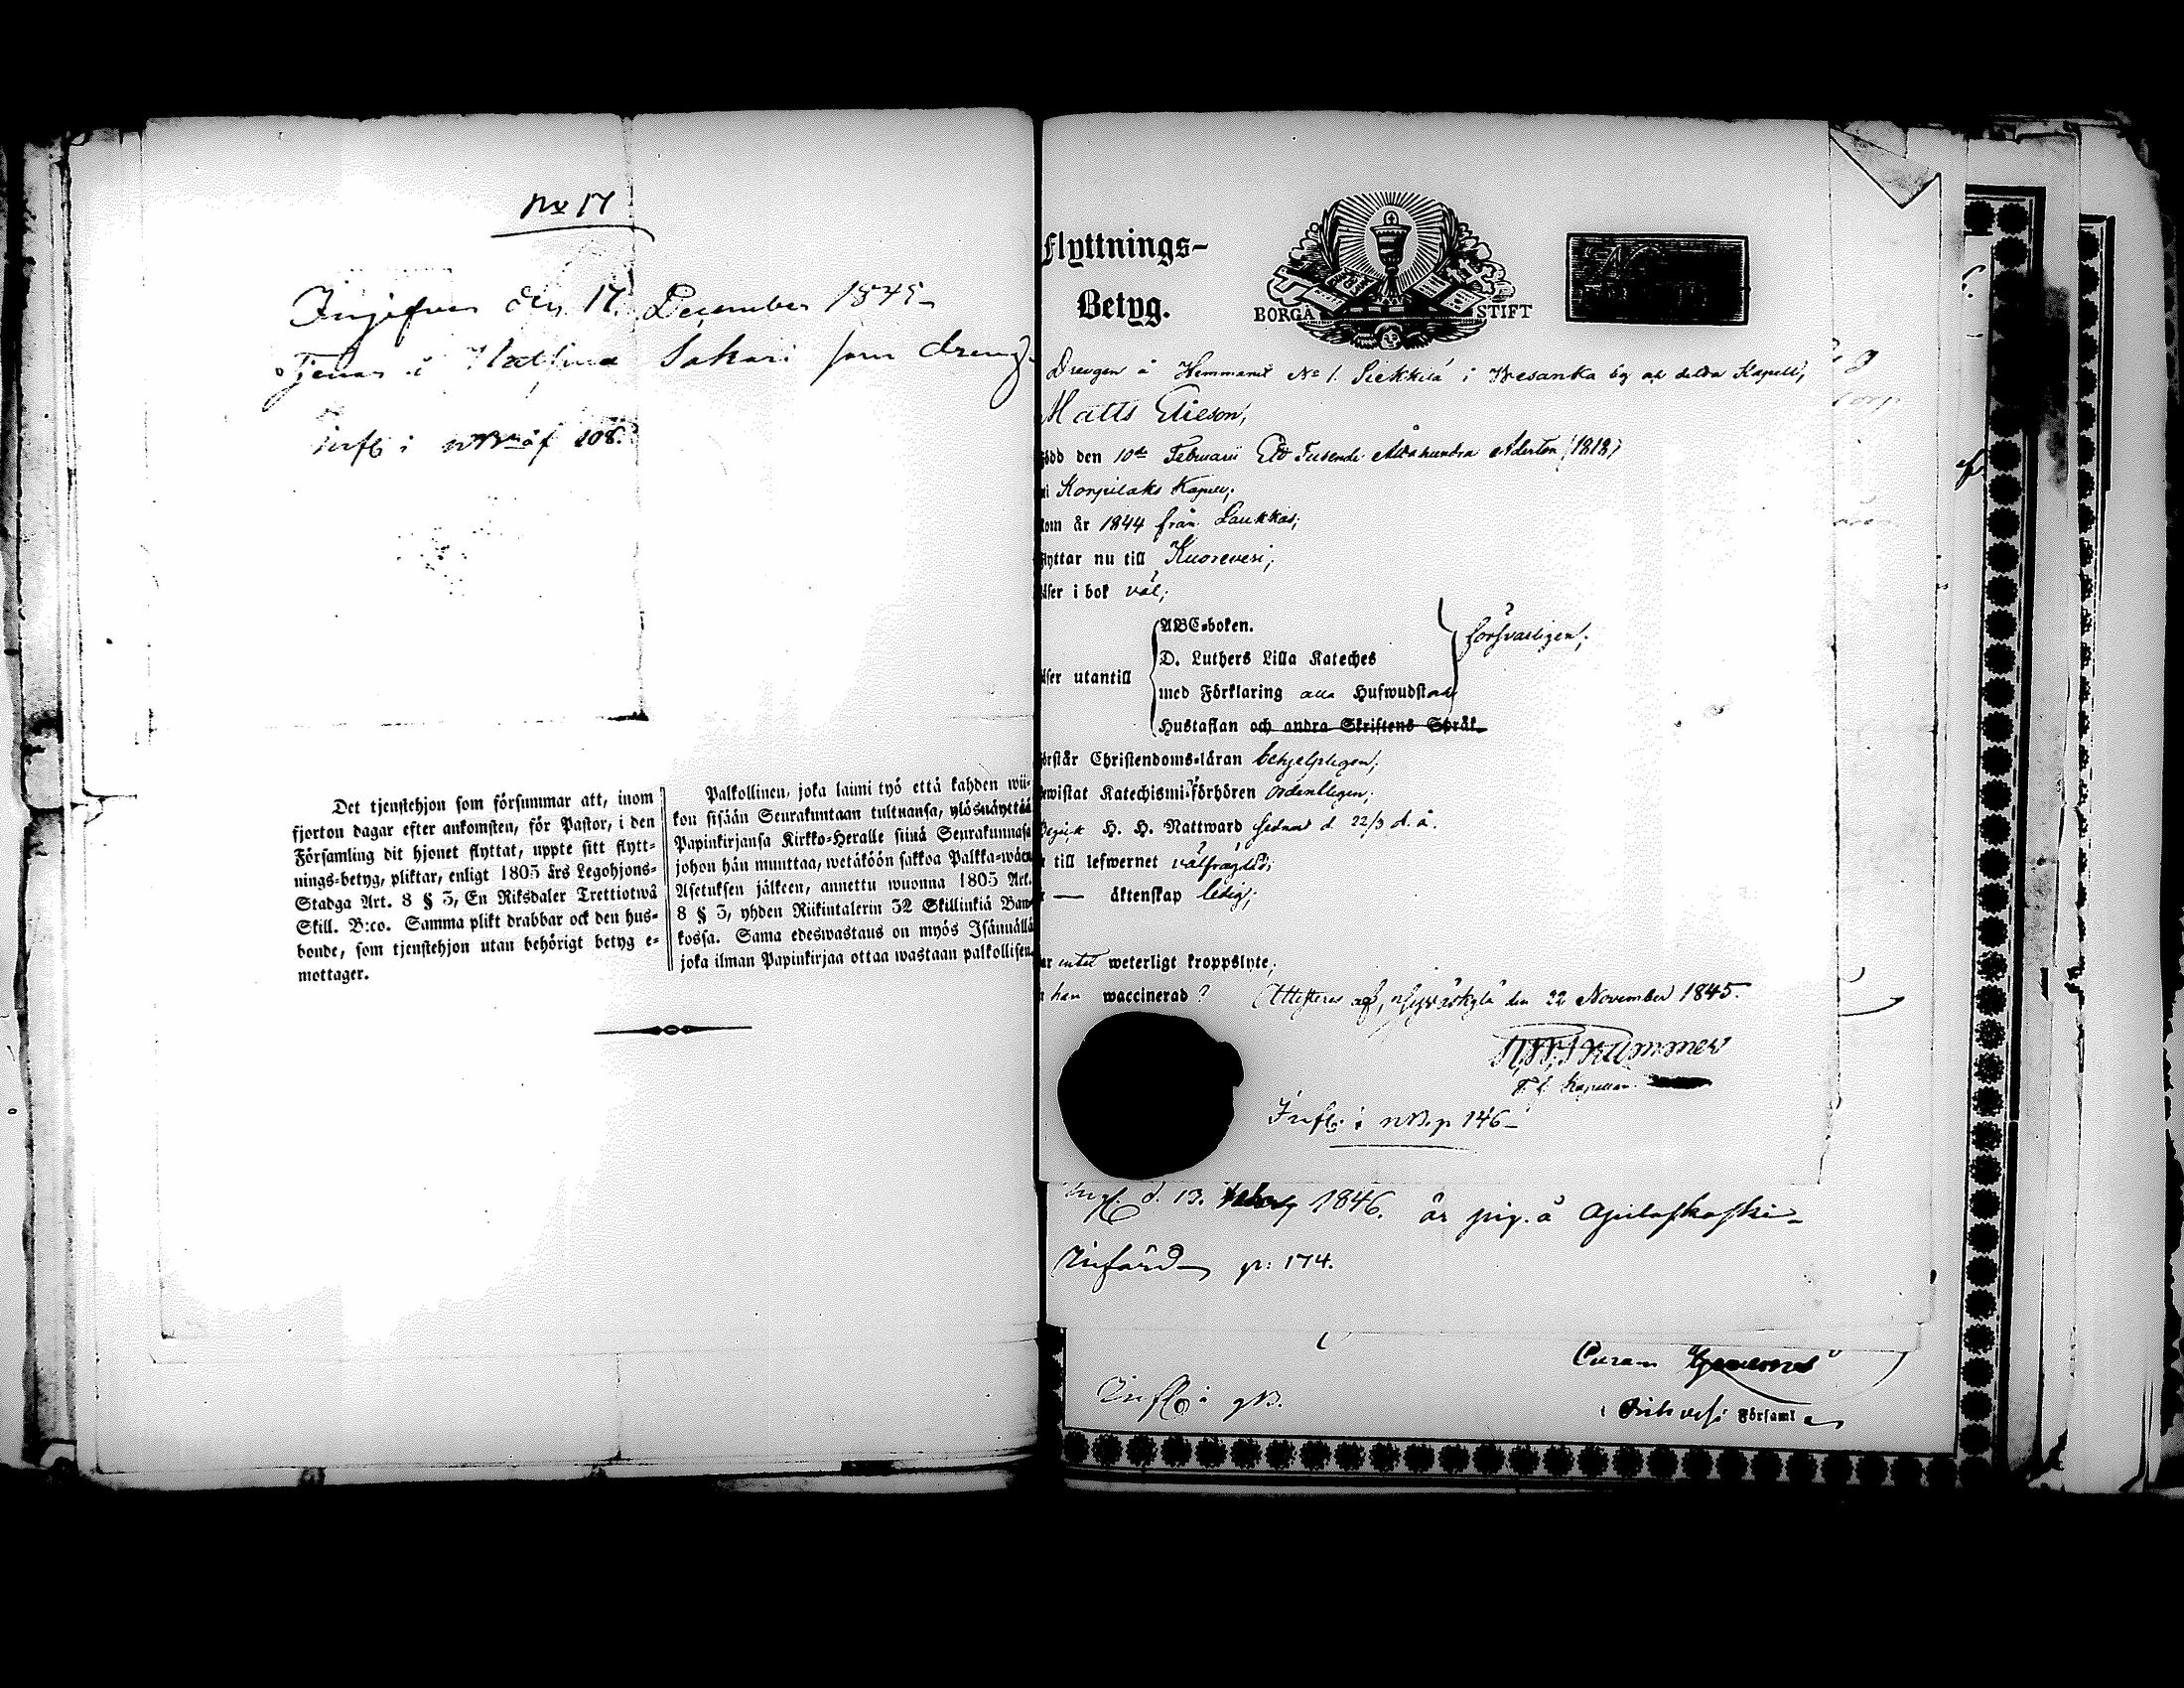 No 17
Ingifven den 17. December 1845
Tjenar i Sakari som dreng
Infl. i NB 108.
Det tjenstehjon som försummar att, inom
fjorton dagar efter ankomsten, för Pastor, i den
Församling dit hjonet flyttat, uppte sitt flytt-
nings-betyg, pliktar, enligt 1805 års Legohjons-
Stadga Art. 8 § 3, En Riksdaler Trettiotwå
Skill. B:co. Samma plikt drabbar ock den hus-
bonde, som tjenstehjon utan behörigt betyg e-
mottager.
Palkollinen, joka laimi työ että kahden wii-
kon sisään Seurakuntaan tultuansa, ylösnäyttää
Papinkirjansa Kirkko-Heralle siinä Seurakunnasa
johon hän muuttaa, wetäköön sakkoa Palkka-wäen
Asetuksen jälkeen, annettu wuonna 1805 Art.
8 § 3, yhden Riikintalerin 32 Skillinkiä Ban-
kossa. Sama edeswastaus on myös Isännällä
joka ilman Papinkirjaa ottaa wastaan palkollisen.
Flyttnings-
Betyg.
BORGÅ STIFT
Drengen å Hemmanet No 1. Siekkilä i Wesanka by af detta Kapell,
Matts Elieson,
född den 10de Februarii Ett Tusende Åttahundra Aderton (1818)
i Korpilaks Kapell;
kom år 1844 från Laukkas;
flyttar nu till Kuorevesi;
läser i bok väl;
läser utantill
ABC-boken.
D. Luthers Lilla Kateches
med Förklaring alla Hufwudst
Hustaflan och andra Skriftens Språk
försvarligen;
förstår Christendoms-läran behjelpligen;
bewistat Katechismi-förhören ordentligen;
Begick H. H. Nattward sednast d. 22/3 d. å.
till lefwernet välfrägdad;
äktenskap ledig;
har intet weterligt kroppslyte;
han waccinerad? Attesteras af, Jyväskylä den 22 November 1845.
T. f. Kapellan.
Infl. i NB. p 146
Ingf. d. 13. 1846. är pig. å
Införd p: 174.
Infl i NB.
Församl